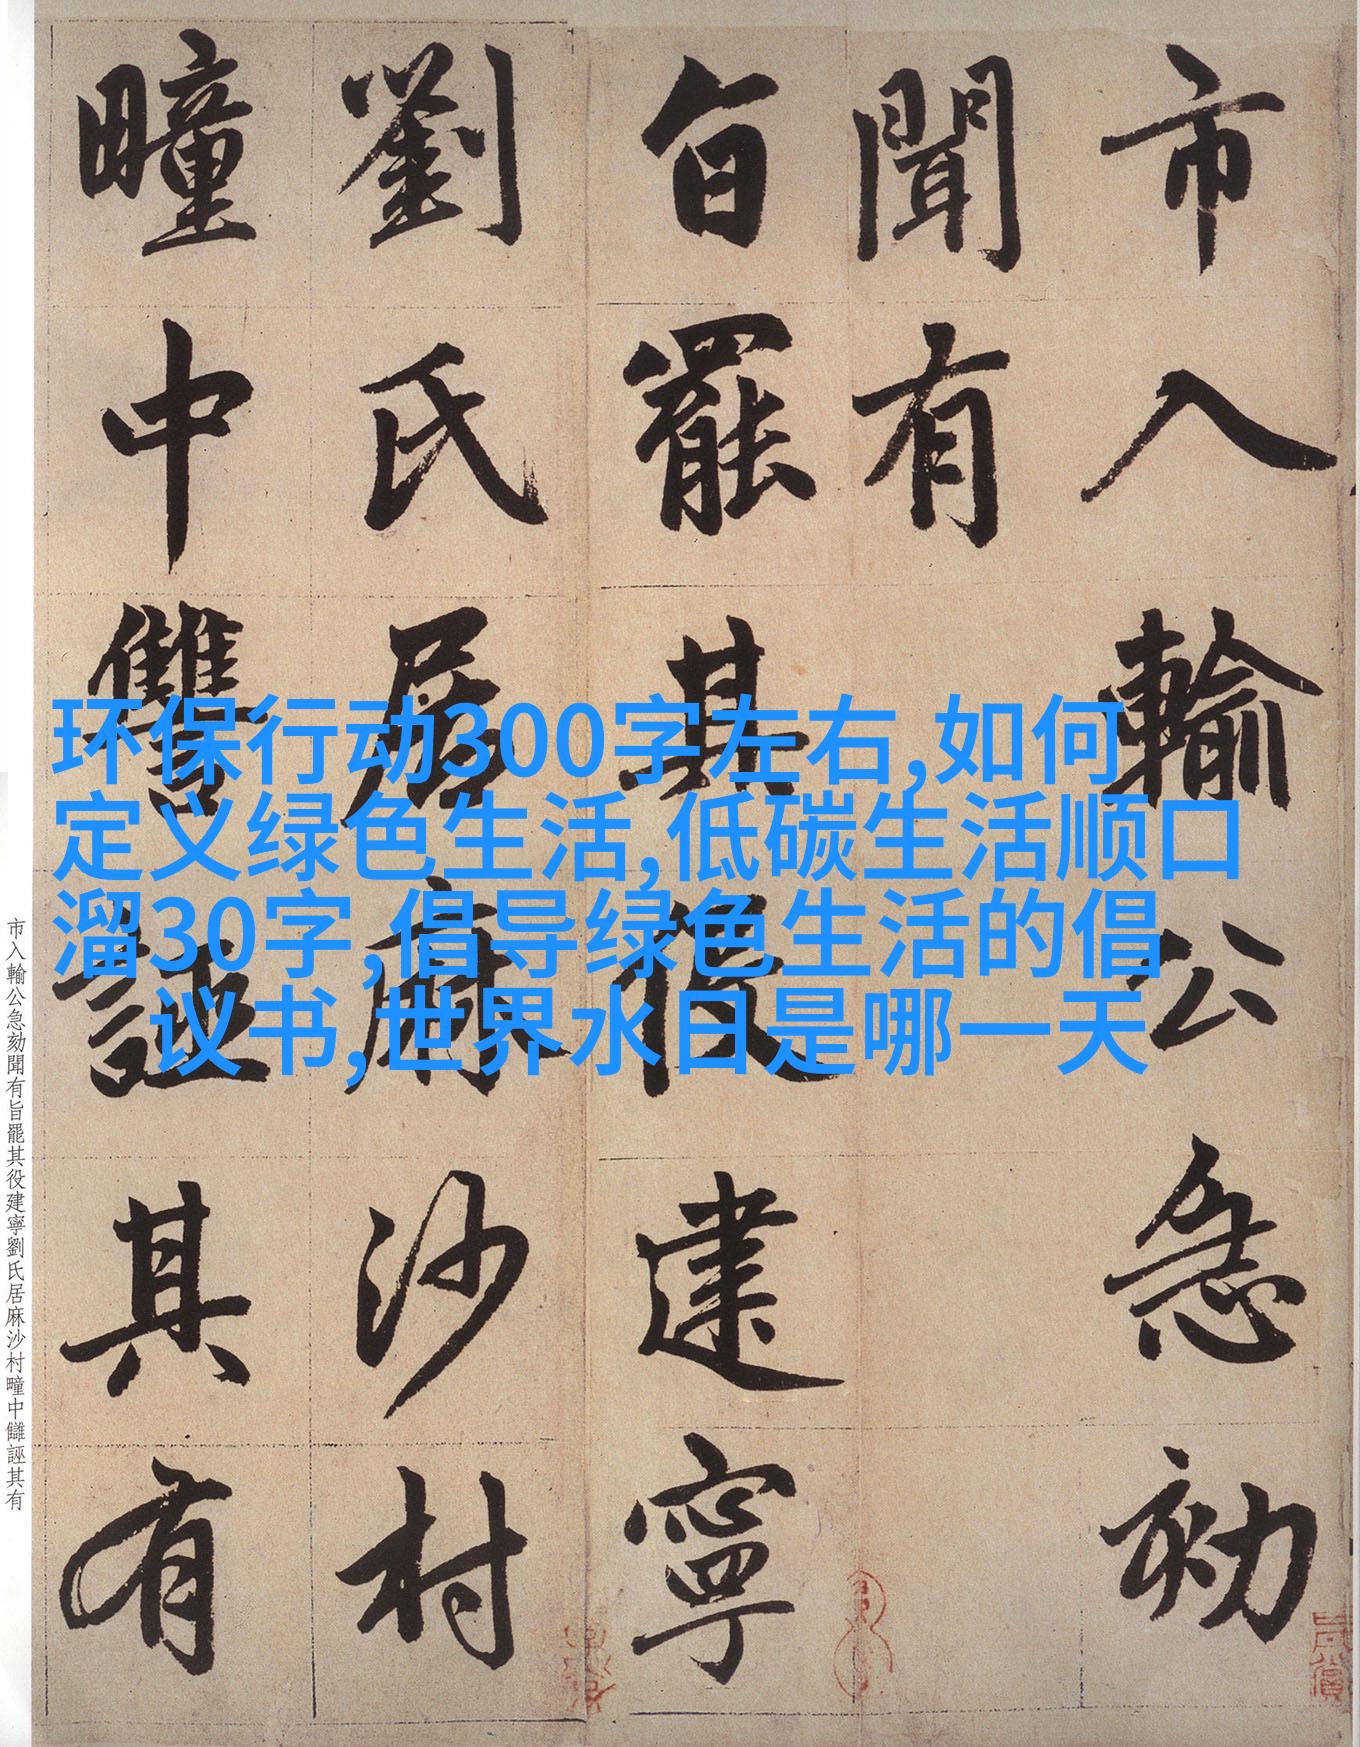 市入輸公急劾
聞有
旨罷其役建寧
劉氏居麻沙村
疃中讎誣其有
环保行动300字左右,如何
定义绿色生活,低碳生活顺口
溜30字,倡导绿色生活的倡
议书,世界水日是哪一天
市入輸公急劾聞有旨罷其役建寧劉氏居麻沙村疃中讎誣其有